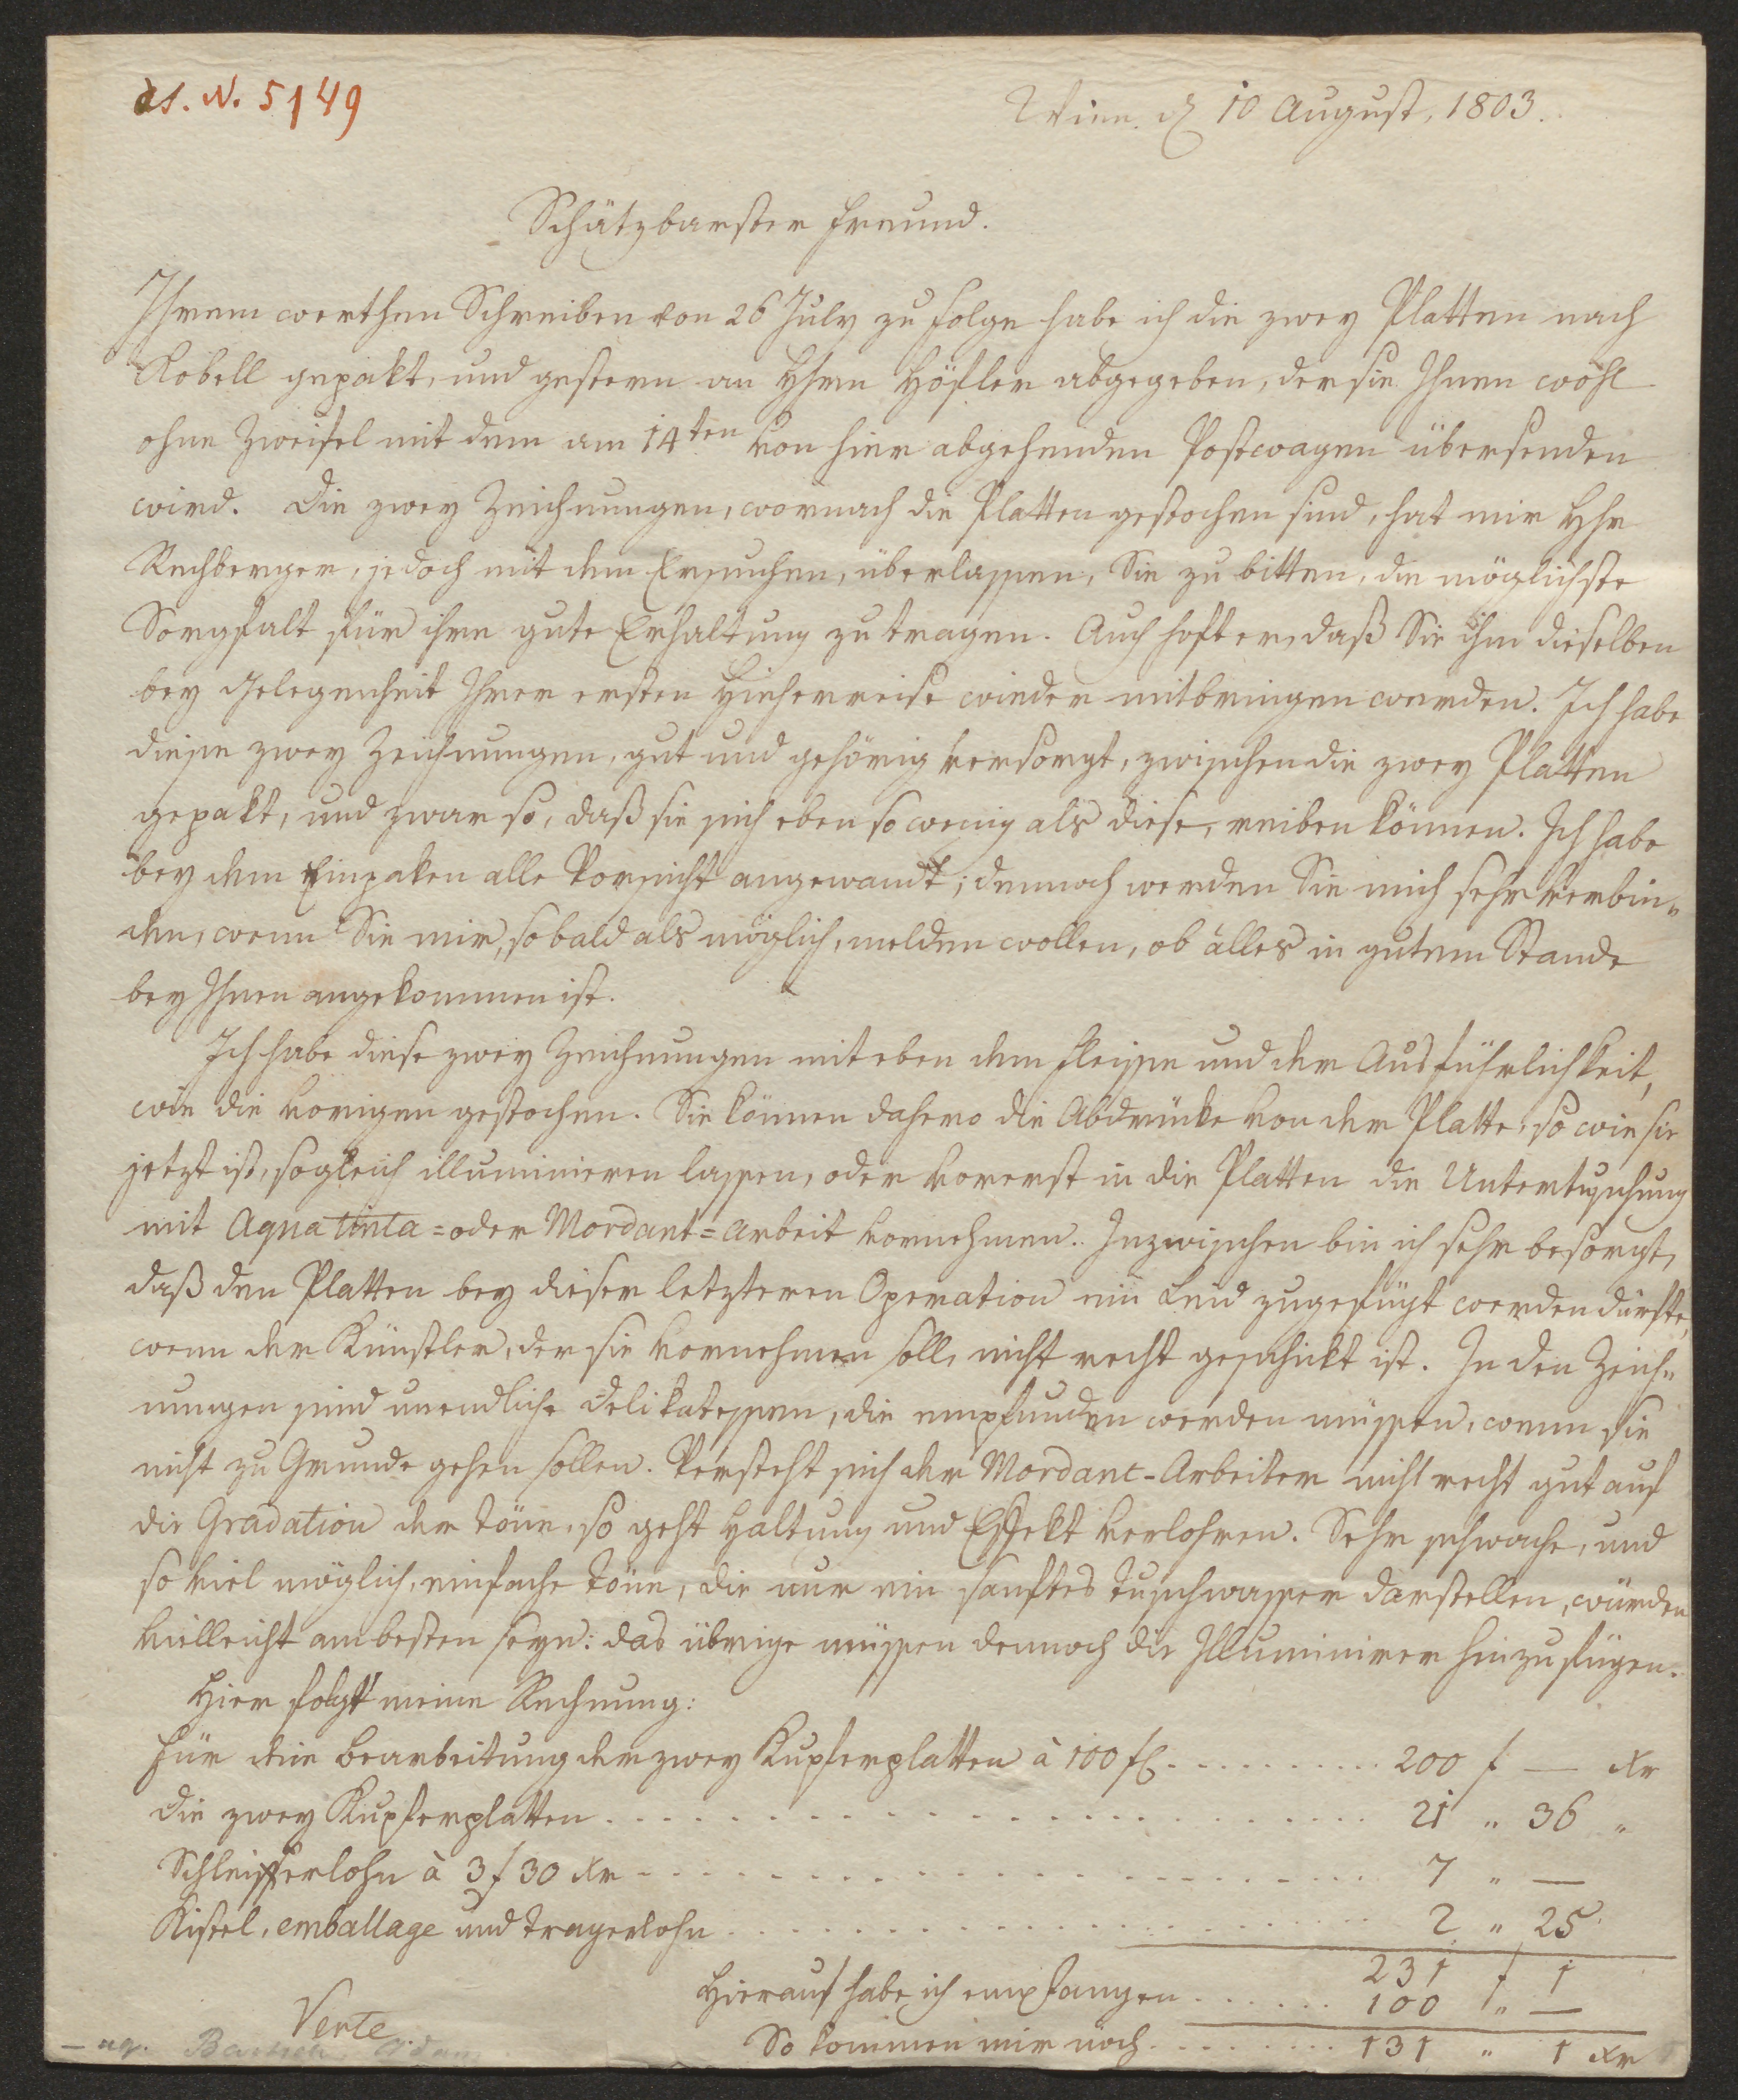 ds. N. 5149
Wien. d 10 August, 1803.
Schätzbarster Freund.
Ihrem werthen Schreiben von 26 July zu folge habe ich die zwey Platten nach
Kobell gepakt, und gestern an Hhrn Höfler abgegeben, der sie Ihnen wohl
ohne Zweifel mit dem am 14ten von hier abgehenden Postwagen übersenden
wird. Die zwey Zeichnungen, wornach die Platten gestochen sind, hat mir Hhr
Rechberger, jedoch mit dem Ersuchen, überlassen, Sie zu bitten, die möglichste
Sorgfalt für ihre gute Erhaltung zu tragen. Auch hoft er, daß Sie ihm dieselben
bey Gelegenheit Ihrer ersten Hieherreise wieder mitbringen werden. Ich habe
diese zwey Zeichnungen, gut und gehörig versorgt, zwischen die zwey Platten
gepakt, und zwar so, daß sie sich eben so wenig als diese, reiben können. Ich habe
bey dem Einpaken alle Vorsicht angewandt; dennoch werden Sie mich sehr verbin„
den, wenn Sie mir, so bald als möglich, melden wollen, ob alles in gutem Stande
bey Ihnen angekommen ist.
Ich habe diese zwey Zeichnungen mit eben dem Fleisse und der Ausführlichkeit,
wie die vorigen gestochen. Sie können dahero die Abdrücke von der Platte, so wie sie
jetzt ist, sogleich illuminieren lassen, oder vorerst in die Platten die Untertuschung
mit Aquatinta= oder Mordant=Arbeit vornehmen. Inzwischen bin ich sehr besorgt,
daß den Platten bey dieser letzteren Operation ein Leid zugefügt werden dürfte,
wenn der Künstler, der sie vornehmen soll, nicht recht geschickt ist. In den Zeich„
nungen sind unendliche Delikatessen, die empfunden werden müssen, wenn sie
nicht zu Grunde gehen sollen. Versteht sich der Mordant-Arbeiter nicht recht gut auf
die Gradation der Töne, so geht Haltung und Effekt verlohren. Sehr schwache, und
so viel möglich, einfache Töne, die nur ein sanftes Tuschwasser darstellen, würden
vielleicht am besten seyn: das übrige müssen dennoch die Illuminirer hinzufügen.
Hier folgt meine Rechnung:
Für die Bearbeitung der zwey Kupferplatten à 100 fl. . . . . . . . . . . 200 f — Xr
Die zwey Kupferplatten . . . . . . . . . . . . . . . . . . . . 21 „ 36 „
Schleifferlohn à 3 f 30 Xr . . . . . . . . . . . . . . . . . . . . 7 „ —
Kistel, emballage und Tragerlohn . . . . . . . . . . . . . . . . . . 2 „ 25
231 f 1
Hierauf habe ich empfangen . . . . . . 100 f „ —
So kommen mir noch . . . . . . . . . 131 „ 1 Xr
Verte.
Bartsch Adam